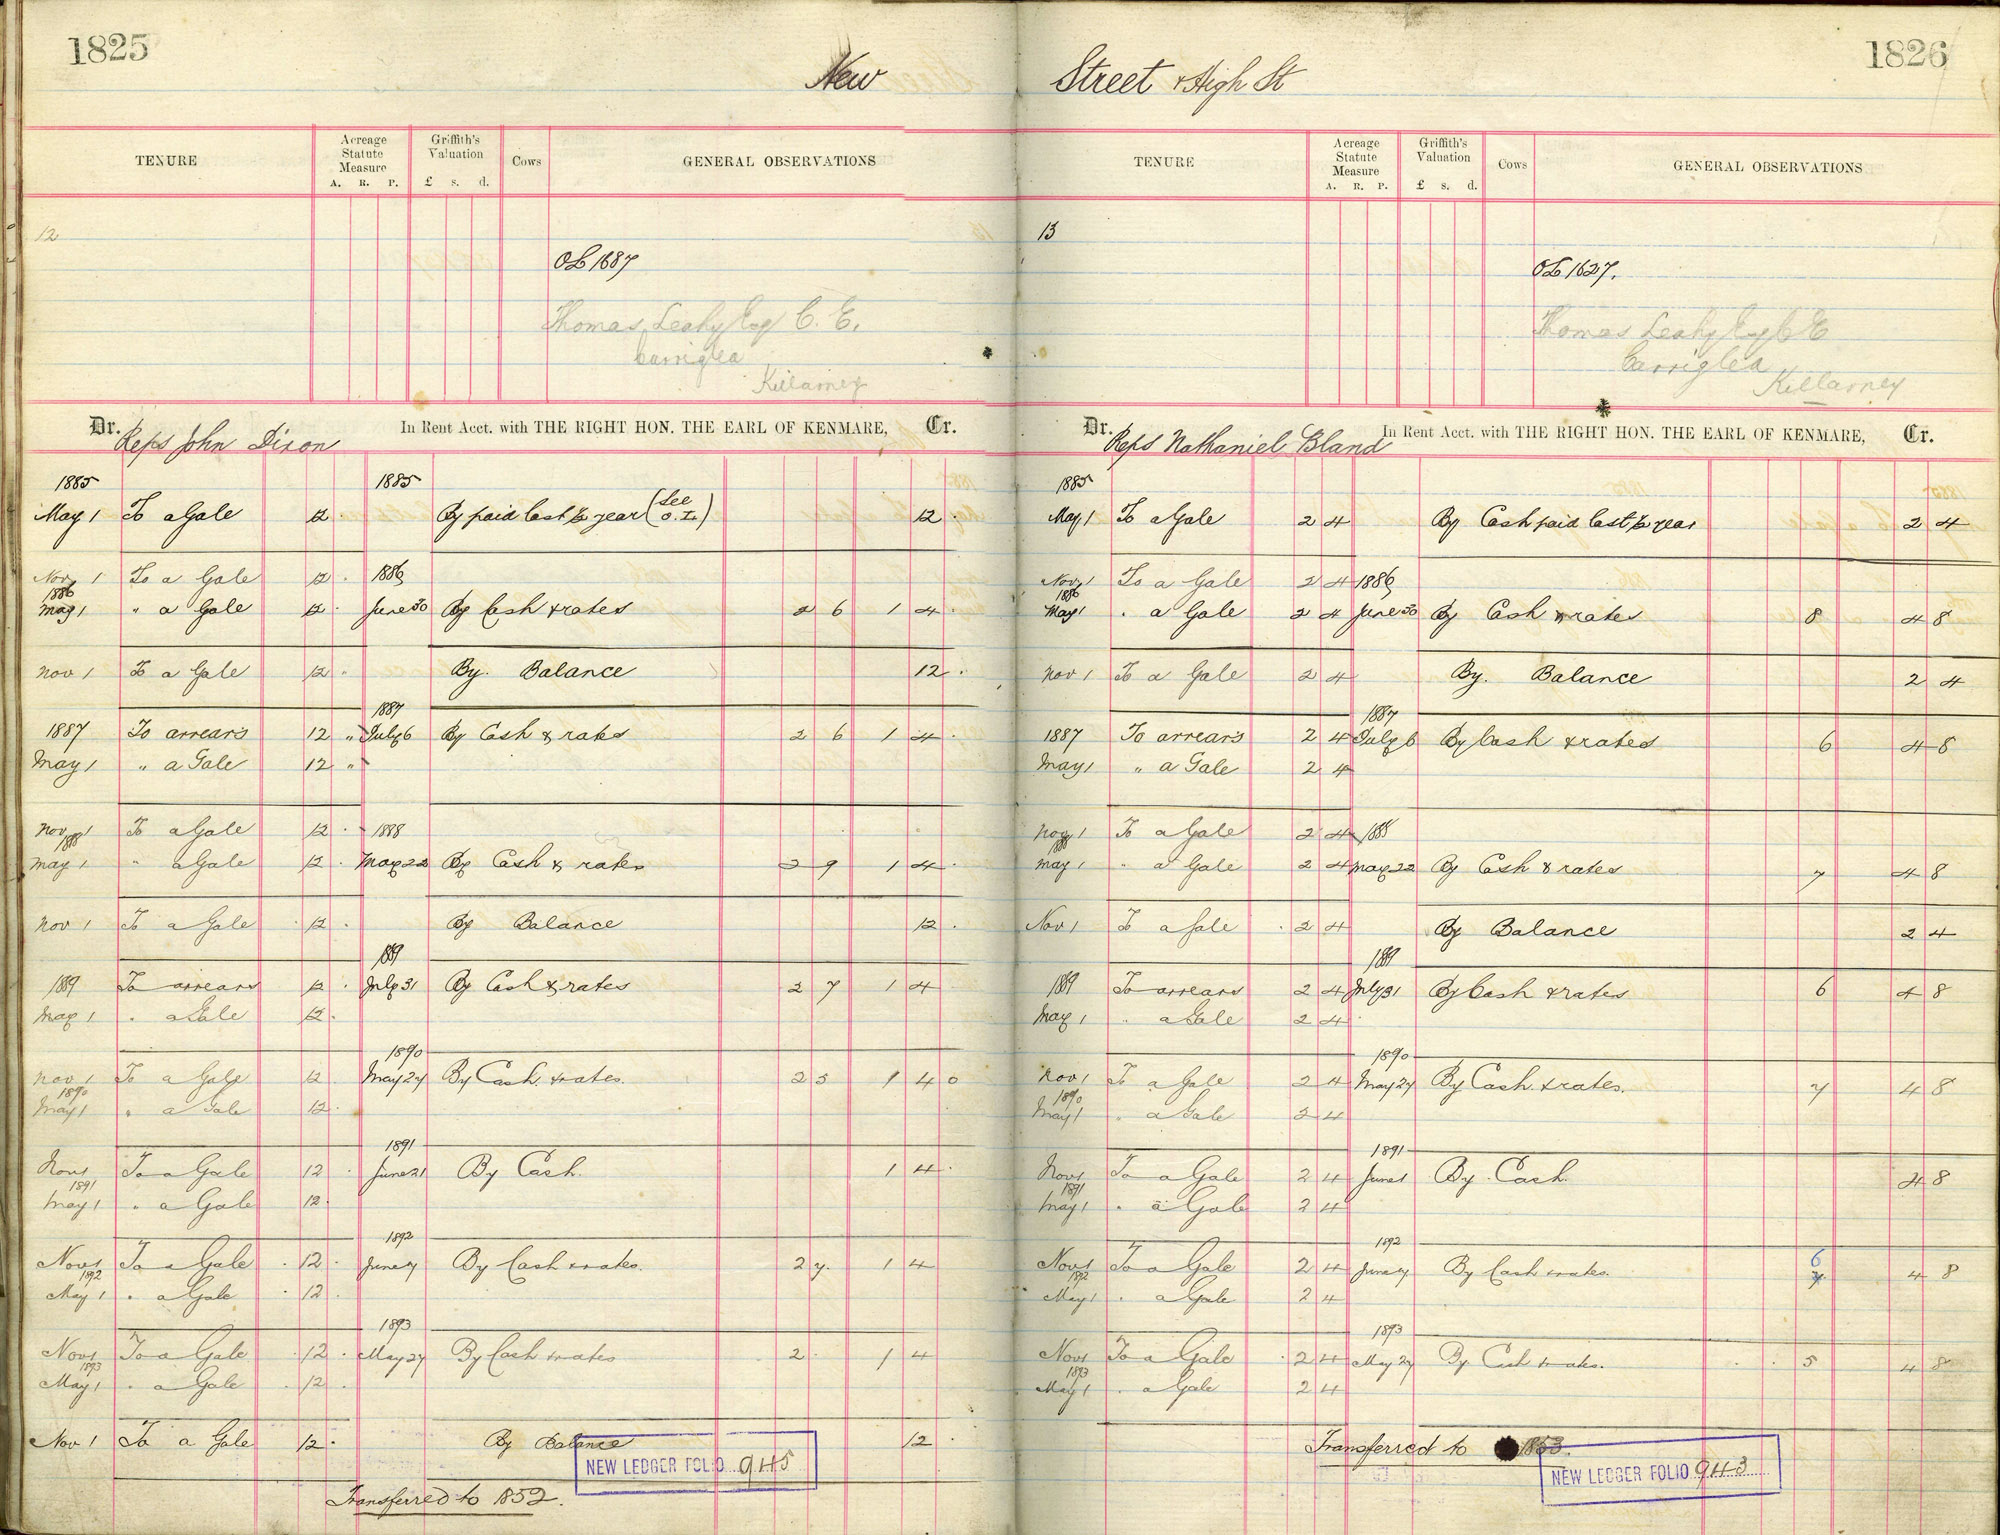 1825
New
TENURE Acreage Statute Measure A. R. P. Griffith's Valuation £ s. d. Cows GENERAL OBSERVATIONS
12
OL 1687
Thomas Leahy Esq C. E.
Carriglea
Killarney
Dr. Reps John Dixon In Rent Acct. with THE RIGHT HON. THE EARL OF KENMARE, Cr.
1885 1885
May 1 To a Gale 12 . By paid last ½ year (See O. L.) 12 .
Nov 1 To a Gale 12 . 1886
1886
May 1 " a Gale 12 . June 30 By Cash & rates 2 6 1 4 .
Nov 1 To a Gale 12 . By. Balance 12 .
1887
1887 To arrears 12 " July 6 By Cash & rates 2 6 1 4 .
May 1 " a Gale 12 "
Nov 1 To a Gale 12 . 1888
1888
May 1 " a Gale 12 . May 22 By Cash & rates 2 9 1 4 .
Nov 1 To a Gale 12 . By Balance 12 .
1889
1889 To arrears 12 . July 31 By Cash & rates 2 7 1 4
May 1 . a Gale 12 .
1890
Nov 1 To a Gale 12 May 27 By Cash & rates. 2 5 1 4 0
1890
May 1 " a Gale 12 .
1891
Nov 1 To a Gale 12 . June 21 By Cash. 1 4 .
1891
May 1 . a Gale 12 .
1892
Nov 1 To a Gale 12 . June 7 By Cash & rates. 2 7. 1 4
1892
May 1 . a Gale 12 .
1893
Nov 1 To a Gale 12 . May 27 By Cash & rates 2 . 1 4
1893
May 1 . a Gale 12 .
Nov 1 To a Gale 12 . By Balance 12 .
NEW LEDGER FOLIO 945
Transferred to 1852.
1826
Street & High St
TENURE Acreage Statute Measure A. R. P. Griffith's Valuation £ s. d. Cows GENERAL OBSERVATIONS
13
OL 1627.
Thomas Leahy Esq C E
Carriglea
Killarney
Dr. Reps Nathaniel Bland In Rent Acct. with THE RIGHT HON. THE EARL OF KENMARE, Cr.
1885
May 1 To a Gale 2 4 By Cash paid last ½ year 2 4
Nov 1 To a Gale 2 4 1886
1886
May 1 . a Gale 2 4 June 30 By Cash & rates 8 4 8
Nov 1 To a Gale 2 4 By. Balance 2 4
1887
1887 To arrears 2 4 July 6 By Cash & rates 6 4 8
May 1 " a Gale 2 4
Nov 1 To a Gale 2 4 1888
1888
May 1 " a Gale 2 4 May 22 By Cash & rates 7 4 8
Nov 1 To a Gale 2 4 By Balance 2 4
1889
1889 To arrears 2 4 July 31 By Cash & rates 6 4 8
May 1 " a Gale 2 4
1890
Nov 1 To a Gale 2 4 May 27 By Cash & rates. 7 4 8
1890
May 1 " a Gale 2 4
1891
Nov 1 To a Gale 2 4 June 1 By Cash. 4 8
1891
May 1 . a Gale 2 4
1892
Nov 1 To a Gale 2 4 June 7 By Cash & rates. 6 7 4 8
1892
May 1 . a Gale 2 4
1893
Nov 1 To a Gale 2 4 May 27 By Cash & rates. 5 4 8
1893
May 1 . a Gale 2 4
Transferred to 1853.
NEW LEDGER FOLIO 943